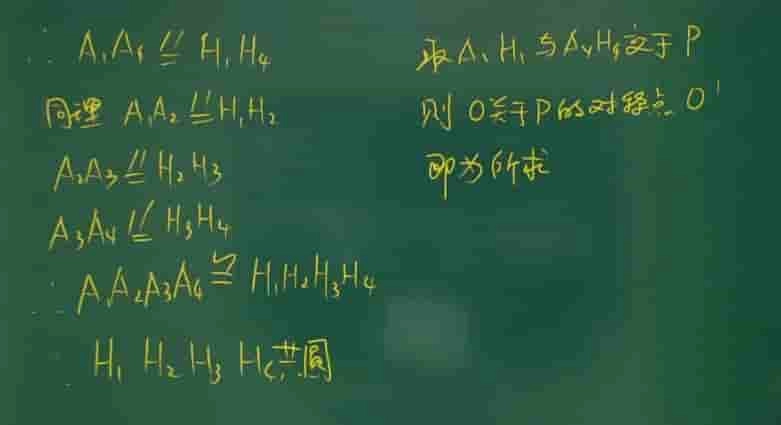 ∴ A₁A₄ ∥= H₁H₄
同理 A₁A₂ ∥= H₁H₂
A₂A₃ ∥= H₂H₃
A₃A₄ ∥= H₃H₄
∴ A₁A₂A₃A₄ ≌ H₁H₂H₃H₄
∴ H₁ H₂ H₃ H₄共圆
取A₁H₁与A₄H₄交于P
则O关于P的对称点O'
即为所求